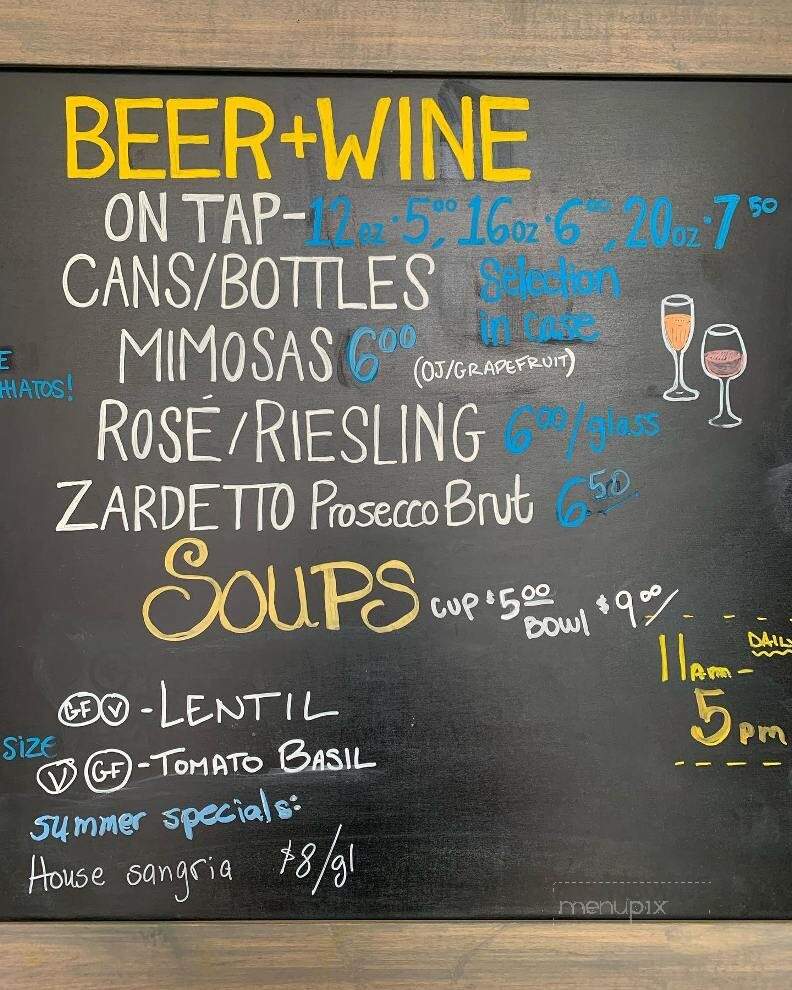 BEER+WINE
ON TAP-12oz·5.00, 16oz·6.00, 20oz·7 50
CANS/BOTTLES Selection
in case
MIMOSAS 6 00 (OJ/GRAPEFRUIT)
ROSÉ/RIESLING 6 00/glass
ZARDETTO Prosecco Brut 6 50
SOUPS CUP $5 00
BOWL $9 00/
DAILY
11am-
5pm
GF V -LENTIL
SIZE
V GF -TOMATO BASIL
summer specials:
House sangria $8/gl
menupix